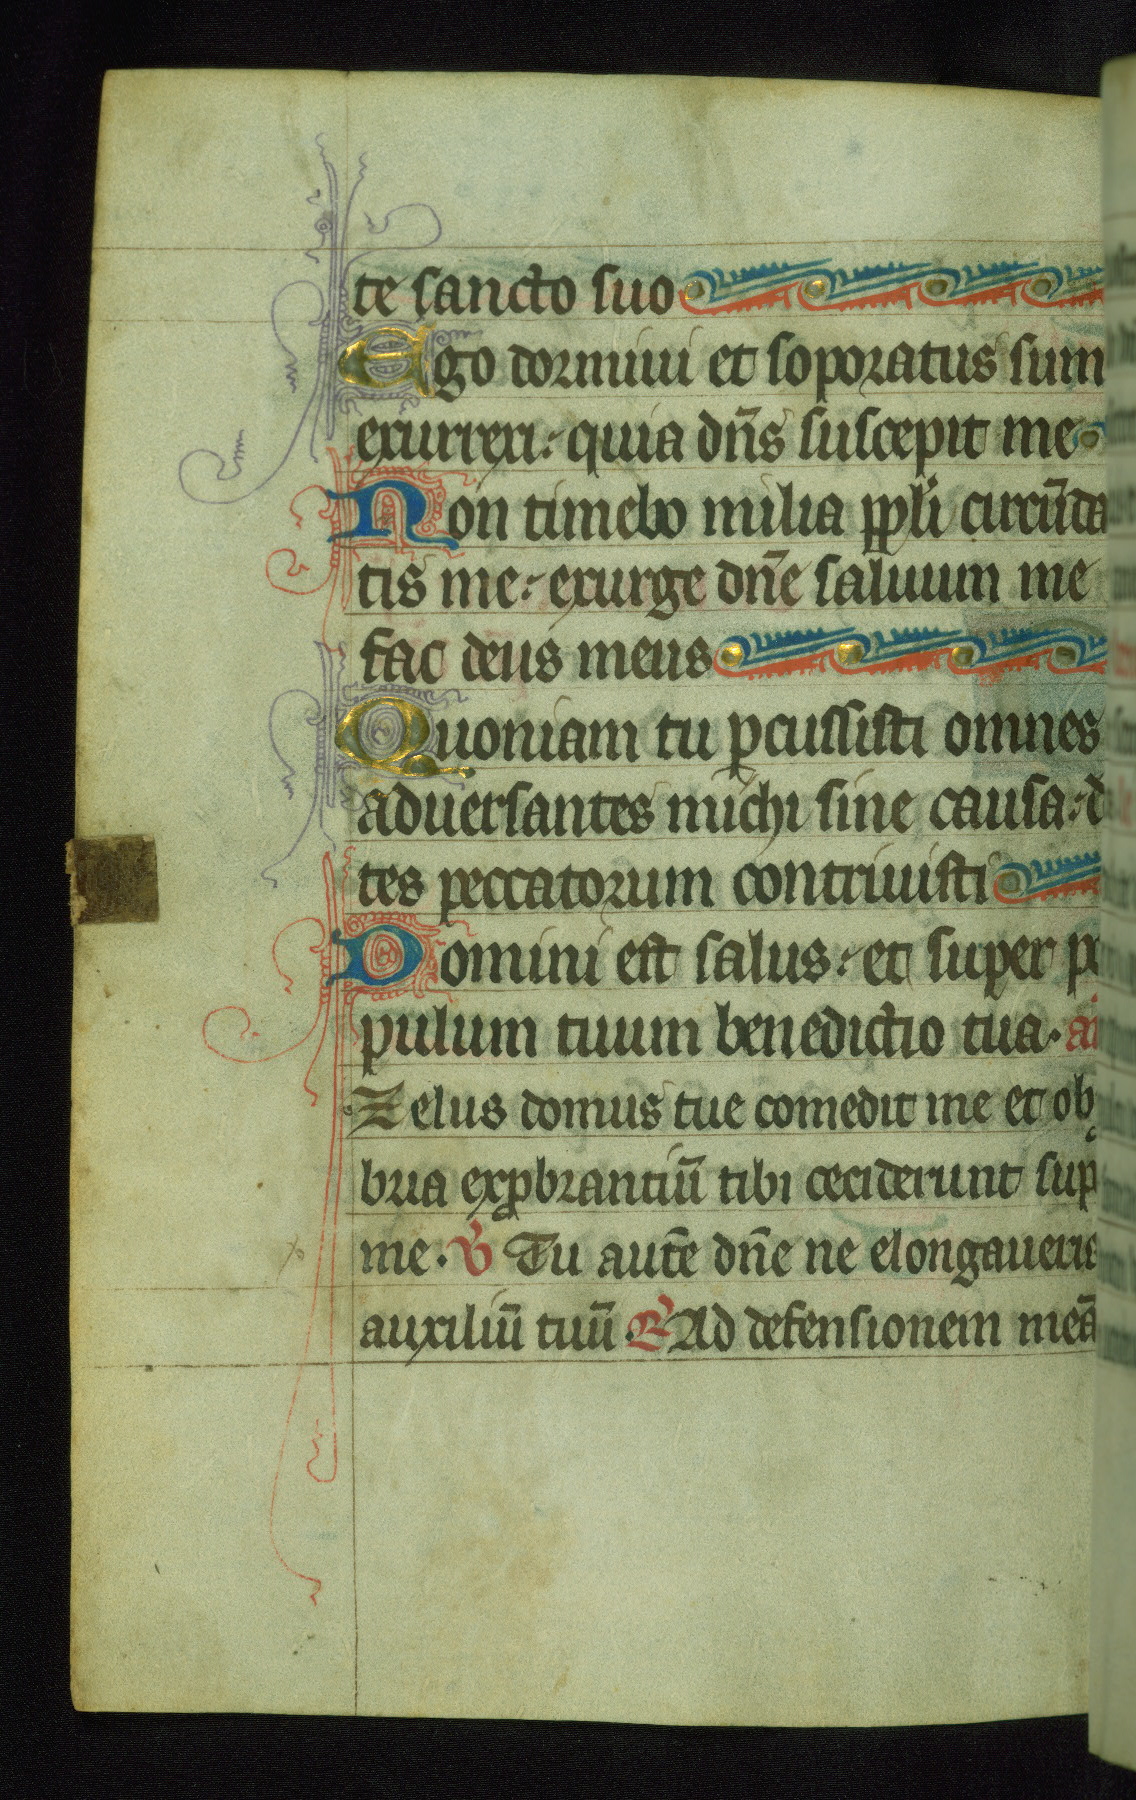 te sancto suo
Ego dormiui et soporatus sum
exurrexi: quia dn̄s suscepit me
Non timebo milia ppl̄i circūda
tis me: exurge dn̄e saluum me
fac deus meus
Quoniam tu ꝑcussisti omnes
aduersantes michi sine causa: d
tes peccatorum contriuisti
Domini est salus: et super po
pulum tuum benedictio tua. an
Zelus domus tue comedit me et ob
bria exꝓbrantiū tibi ceciderunt sup
me. V Tu autē dn̄e ne elongaueris
auxiliū tuū. R Ad defensionem meā